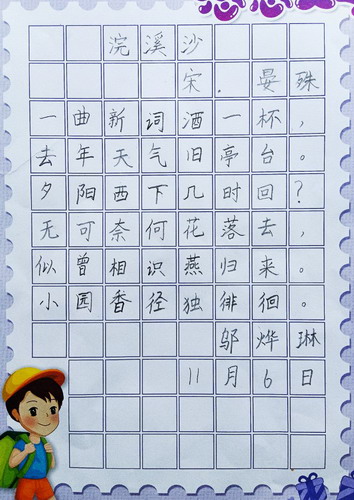 浣溪沙
宋．晏殊
一曲新词酒一杯，
去年天气旧亭台。
夕阳西下几时回？
无可奈何花落去，
似曾相识燕归来。
小园香径独徘徊。
邬烨琳
11月6日